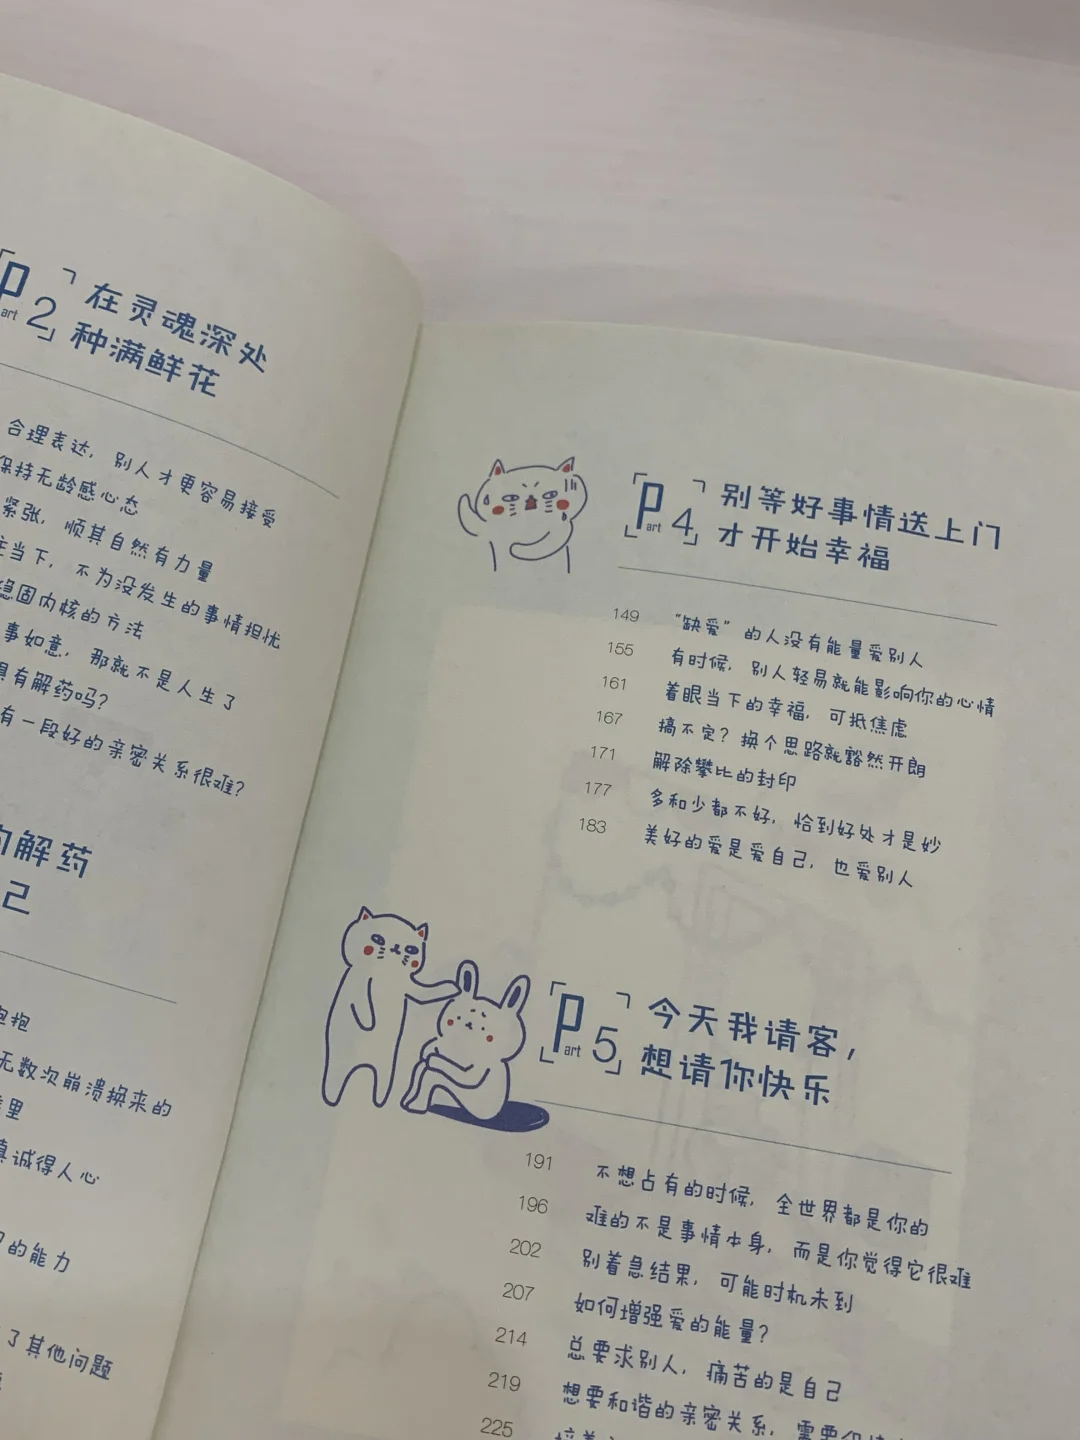 Part 2
在灵魂深处
种满鲜花
合理表达，别人才更容易接受
保持无龄感心态
紧张，顺其自然有力量
当下，不为没发生的事情担忧
稳固内核的方法
事如意，那就不是人生了
有解药吗？
有一段好的亲密关系很难？
的解药
己
抱
无数次崩溃换来的
里
真诚得人心
的能力
了其他问题
Part 4
别等好事情送上门
才开始幸福
149 “缺爱”的人没有能量爱别人
155 有时候，别人轻易就能影响你的心情
161 着眼当下的幸福，可抵焦虑
167 搞不定？换个思路就豁然开朗
171 解除攀比的封印
177 多和少都不好，恰到好处才是妙
183 美好的爱是爱自己，也爱别人
Part 5
今天我请客，
想请你快乐
191 不想占有的时候，全世界都是你的
196 难的不是事情本身，而是你觉得它很难
202 别着急结果，可能时机未到
207 如何增强爱的能量？
214 总要求别人，痛苦的是自己
219 想要和谐的亲密关系，需要
225 培养